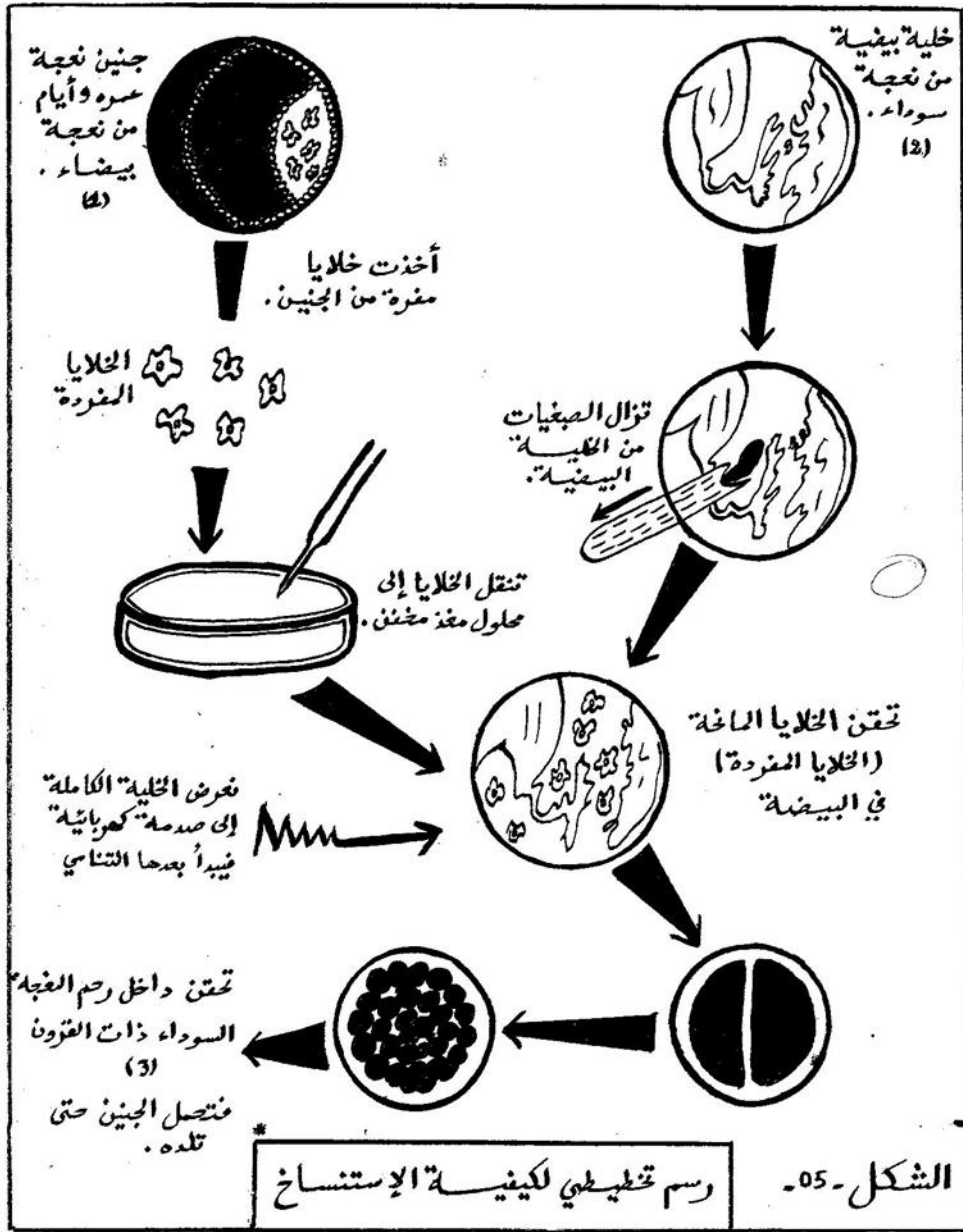 خلية بيضية
من نعجة
سوداء.
(2)
جنين نعجة
عمره 9 أيام
من نعجة
بيضاء.
(1)
أخذت خلايا
مفرة من الجنين.
الخلايا
المفردة
تزال الصبغيات
من الخلية
البيضية.
تنقل الخلايا إلى
محلول مغذ
تحقن الخلايا المانحة
(الخلايا المفردة)
في البيضة
نعرض الخلية الكاملة
إلى صدمة كهربائية
فيبدأ بعدها التنامي
تحقن داخل رحم النعجة
السوداء ذات القرون
(3)
فتحمل الجنين حتى
تلده.
الشكل -05-
رسم تخطيطي لكيفية الإستنساخ